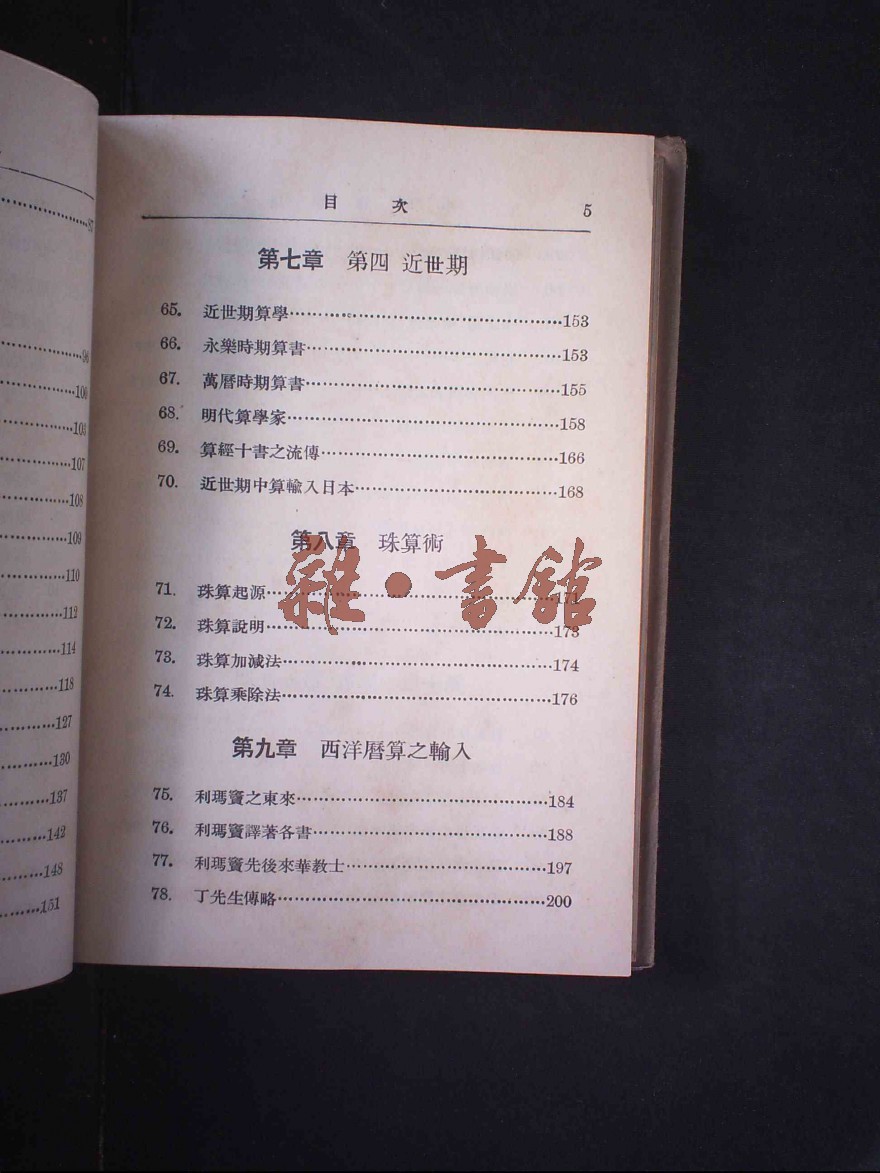 87
98
100
105
107
108
109
110
112
114
118
127
130
137
142
148
151
目 次 5
第七章 第四 近世期
65. 近世期算學 153
66. 永樂時期算書 153
67. 萬曆時期算書 155
68. 明代算學家 158
69. 算經十書之流傳 166
70. 近世期中算輸入日本 168
第八章 珠算術
71. 珠算起源 171
雜·書館
72. 珠算說明 173
73. 珠算加減法 174
74. 珠算乘除法 176
第九章 西洋曆算之輸入
75. 利瑪竇之東來 184
76. 利瑪竇譯著各書 188
77. 利瑪竇先後來華教士 197
78. 丁先生傳略 200